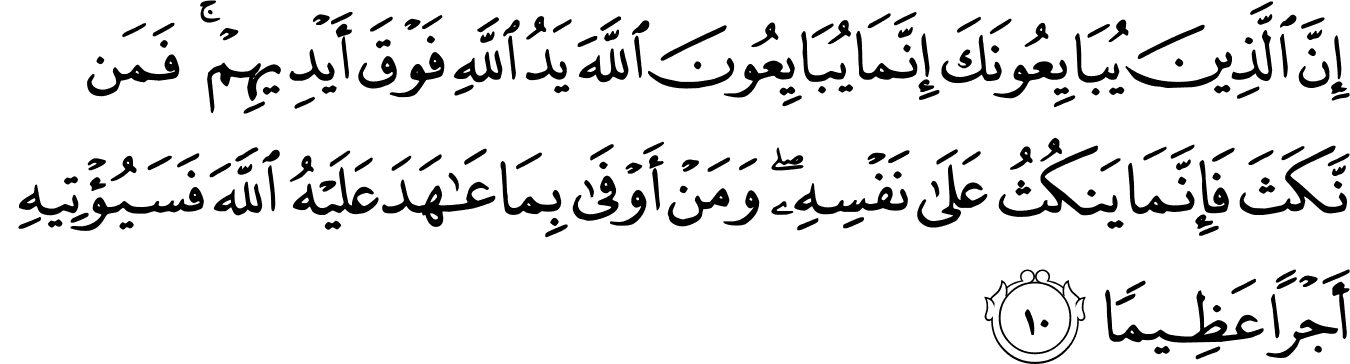 إِنَّ ٱلَّذِينَ يُبَايِعُونَكَ إِنَّمَا يُبَايِعُونَ ٱللَّهَ يَدُ ٱللَّهِ فَوْقَ أَيْدِيهِمْ ۚ فَمَن
نَّكَثَ فَإِنَّمَا يَنكُثُ عَلَىٰ نَفْسِهِۦ ۖ وَمَنْ أَوْفَىٰ بِمَا عَـٰهَدَ عَلَيْهُ ٱللَّهَ فَسَيُؤْتِيهِ
أَجْرًا عَظِيمًا ١٠